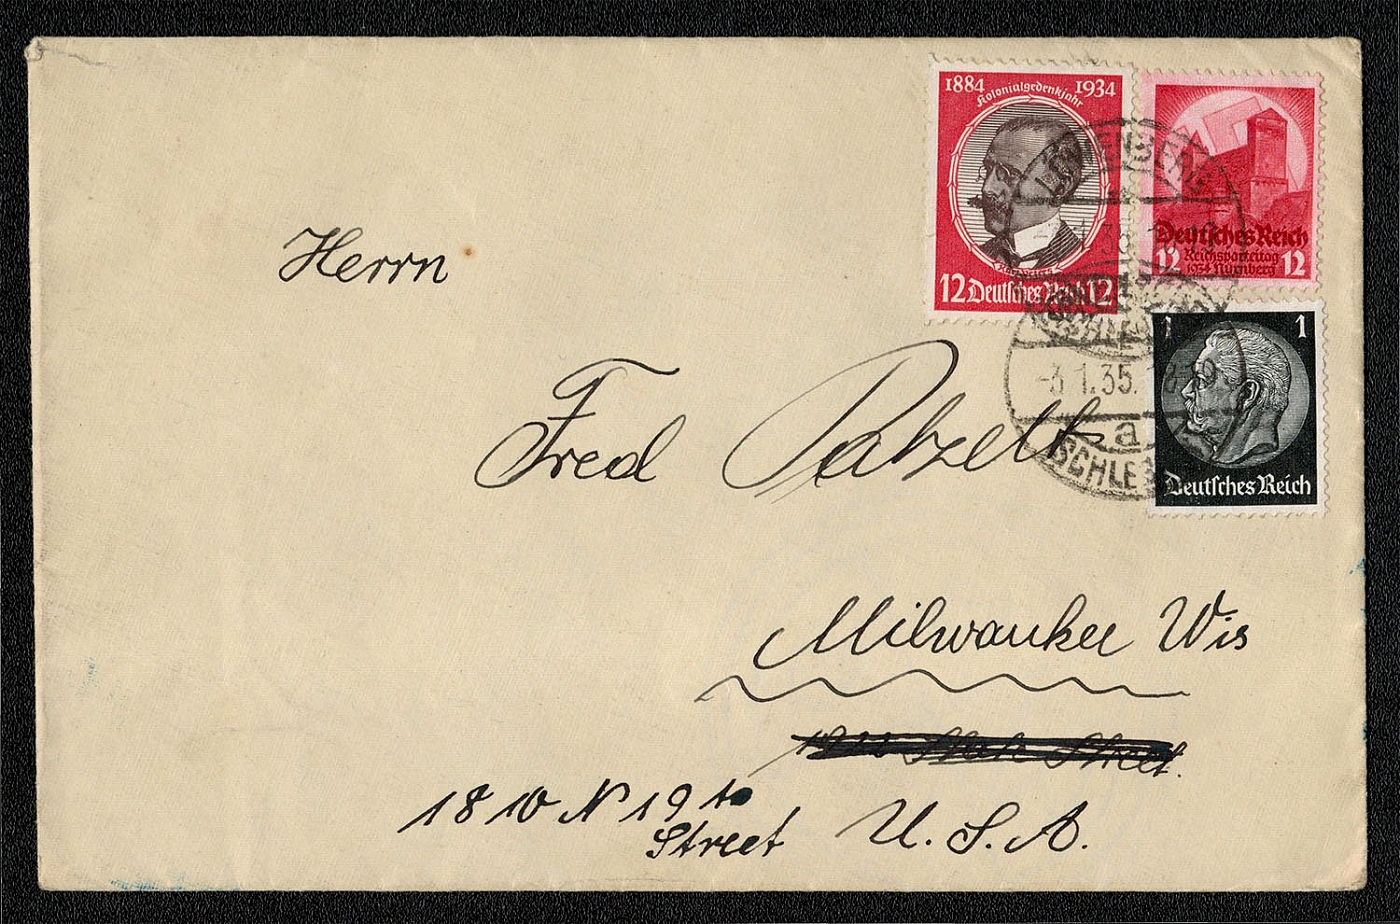 1884 1934
Kolonialgedenkjahr
12 Deutsches Reich 12
Deutsches Reich
12 Reichsparteitag 12
1934 Nürnberg
LÖWENBERG
1 1
-3.1.35. 18-19
a
SCHLES
Deutsches Reich
Herrn
Fred Patzelt
Milwaukee Wis
Street.
1810 N 19
Street
U. S. A.